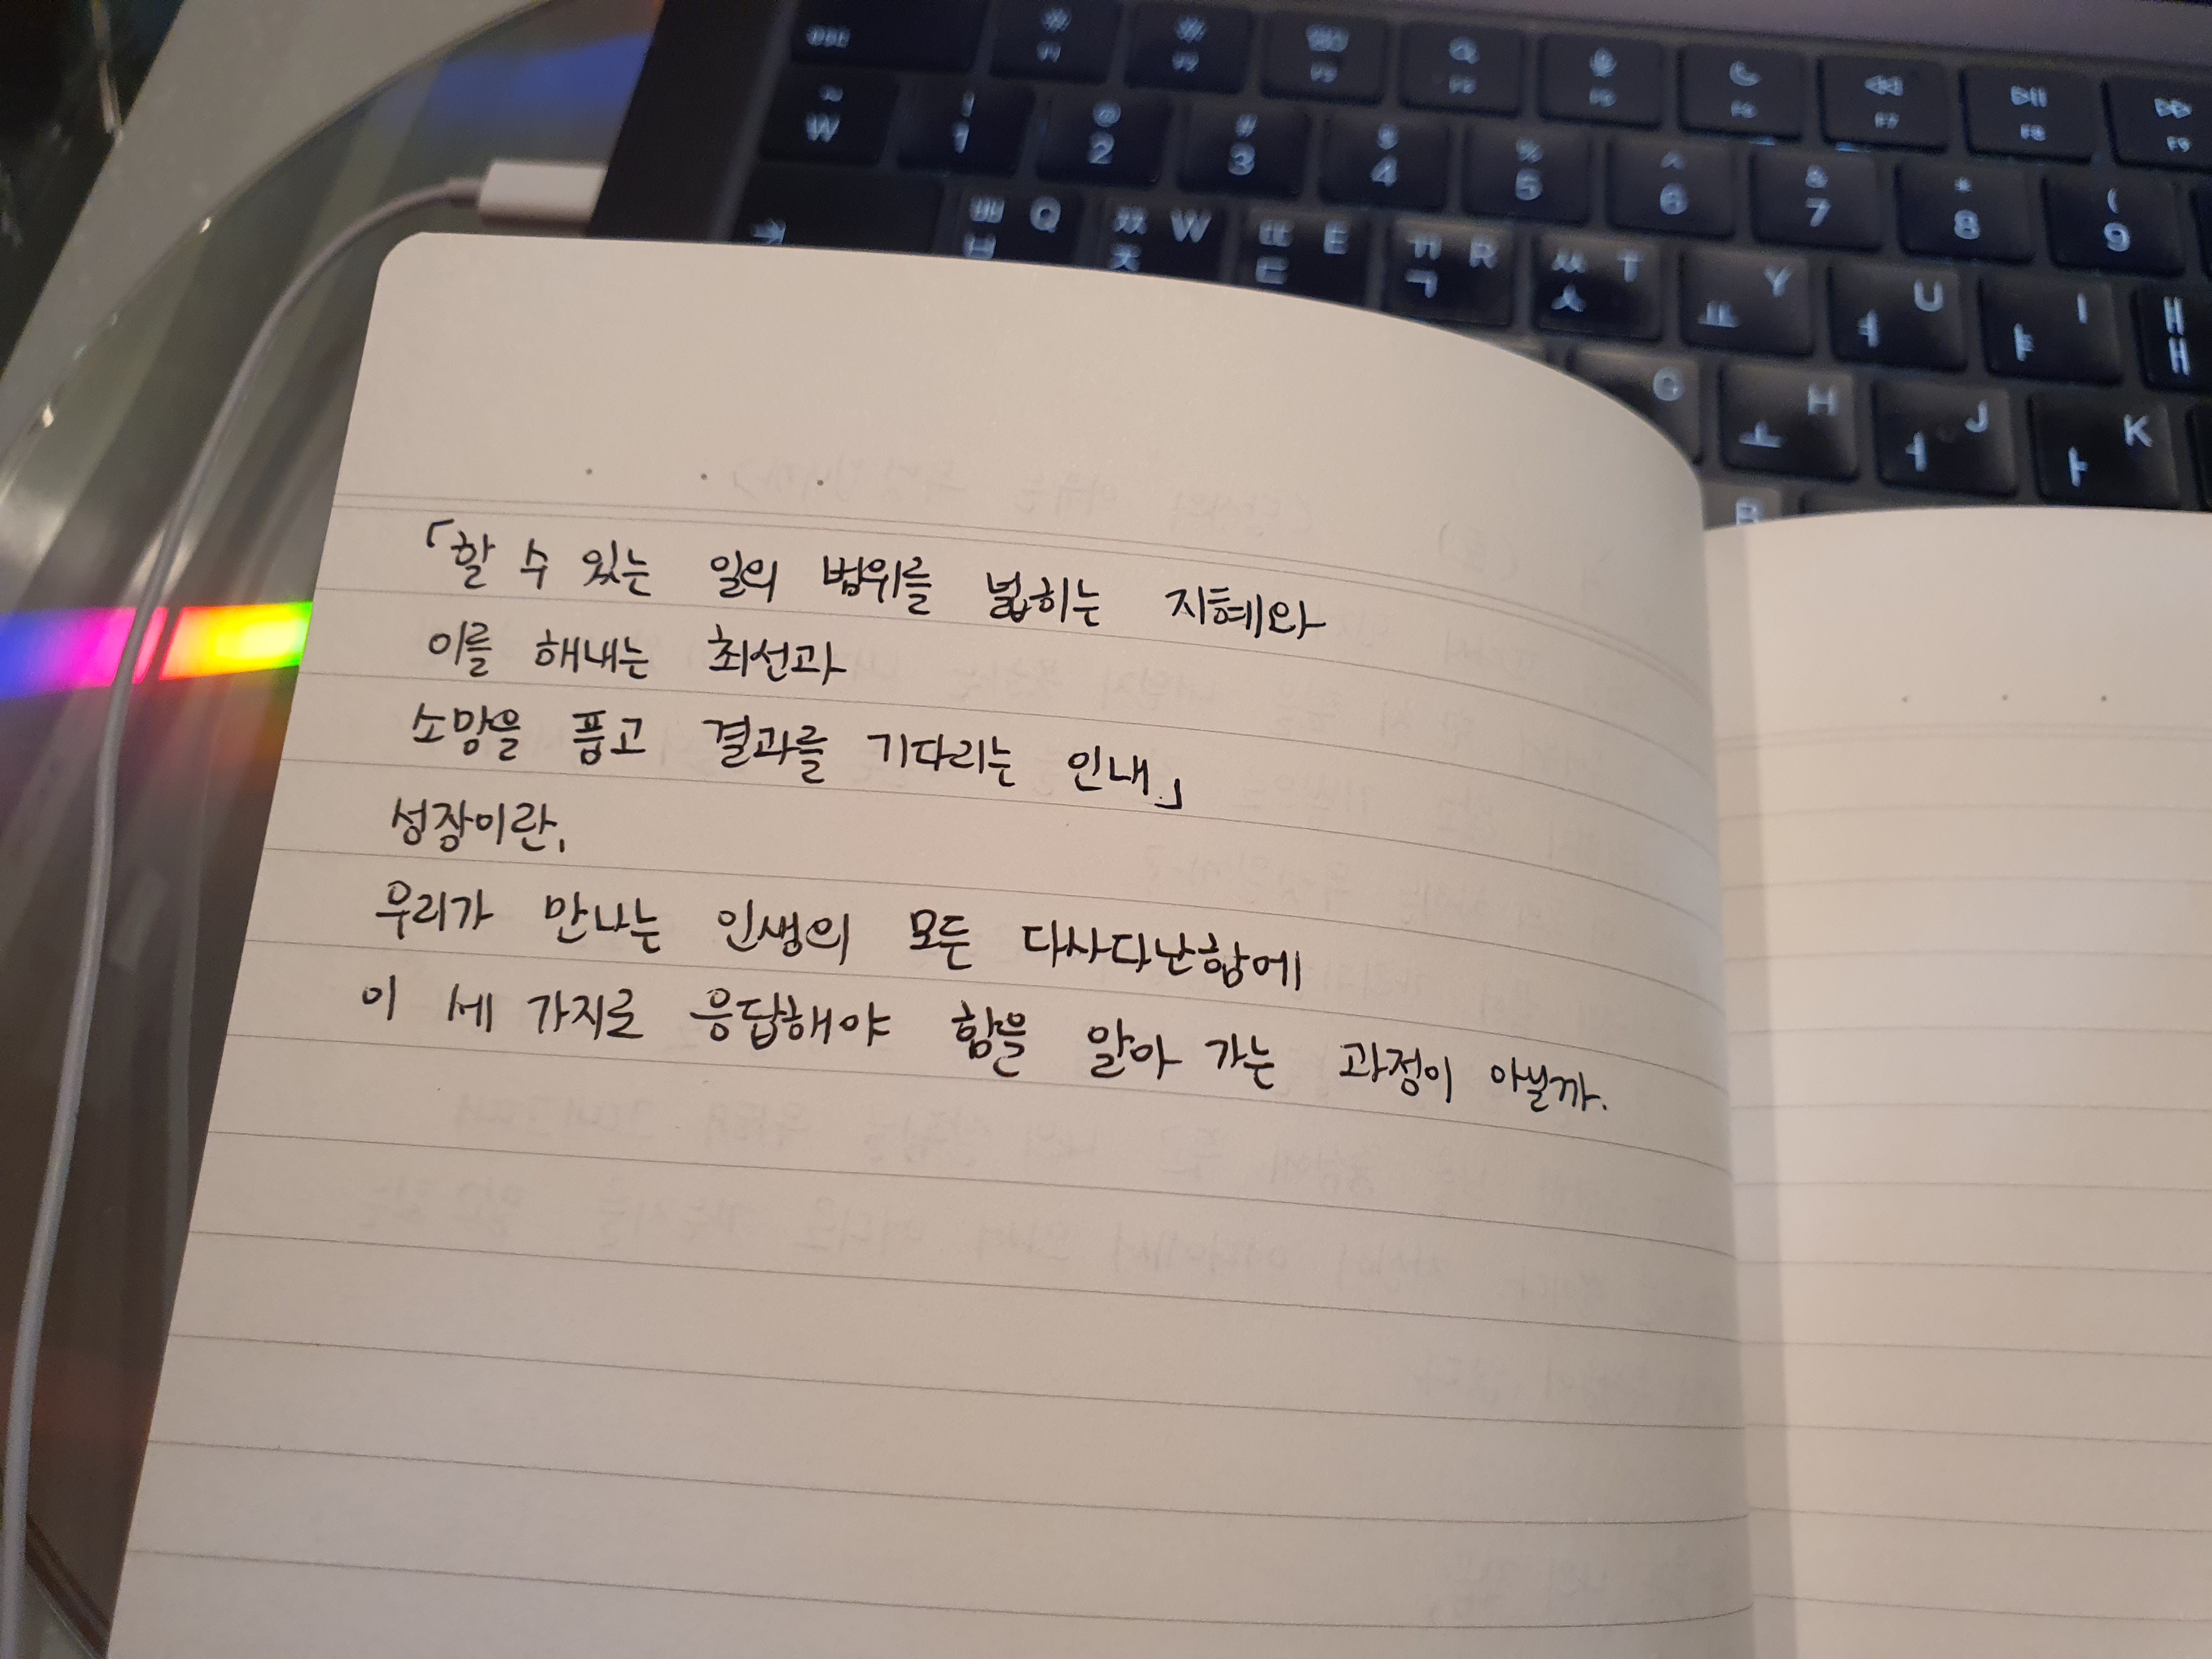 esc F1 F2 F3 F4 F5 F6 F7 F8 F9
~ ! @ # $ % ^ & * (
₩ 1 2 3 4 5 6 7 8 9
ㅃ Q ㅉ W ㄸ E ㄲ R ㅆ T Y U I ㅒ
ㅂ ㅈ ㄷ ㄱ ㅅ ㅛ ㅕ ㅑ ㅐ
G H J K
ㅗ ㅓ ㅏ
B
「할 수 있는 일의 범위를 넓히는 지혜와
이를 해내는 최선과
소망을 품고 결과를 기다리는 인내」
성장이란,
우리가 만나는 인생의 모든 다사다난함에
이 세 가지로 응답해야 함을 알아 가는 과정이 아닐까.